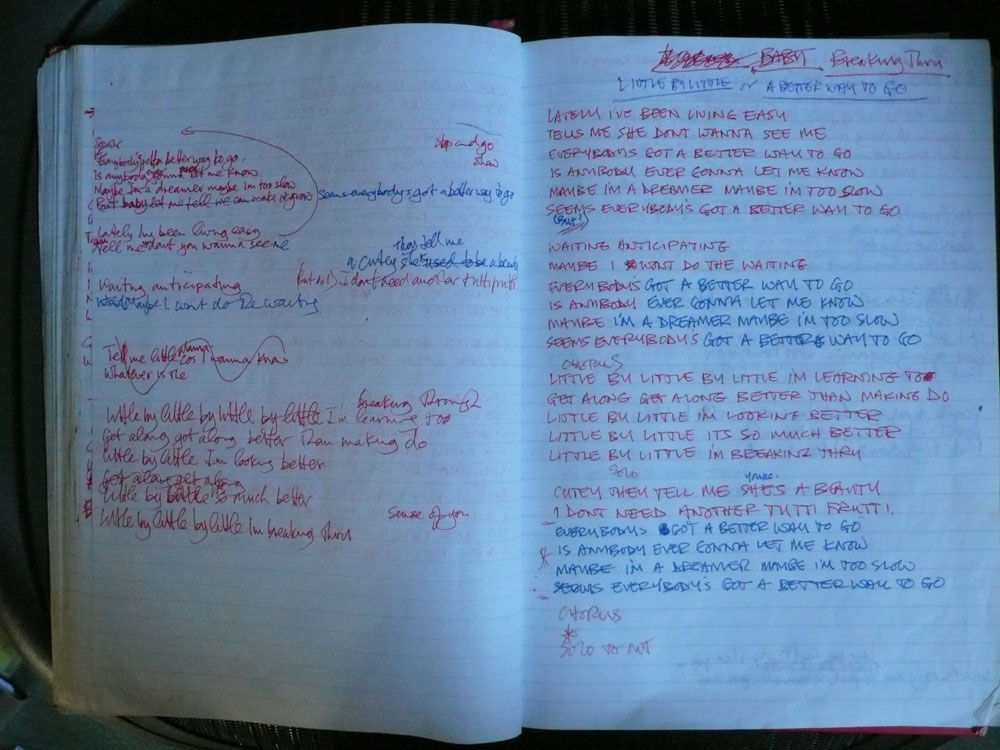 Everybody's gotta better way to go
stop and go
show
Is anybody gonna let me know
Maybe I'm a dreamer maybe I'm too slow
Seems everybody's got a better way to go
But baby let me tell me we can make it grow
Lately I've been living easy
Tell me don't you wanna see me
They tell me
a cutey she's used to be a beauty
Waiting anticipating
(but no!) I don't need another tutti frutti
Maybe I wont do the waiting
Tell me little wanna know
Whatever is the
breaking through
little by little by little by little I'm learning too
Got along got along better than making do
little by little I'm looking better
Get along get along
little by little so much better
Sense of you
little by little by little Im breaking thru
BABY Breaking Thru
LITTLE BY LITTLE or A BETTER WAY TO GO
LATELY I'VE BEEN LIVING EASY
TELLS ME SHE DONT WANNA SEE ME
EVERYBODYS GOT A BETTER WAY TO GO
IS ANYBODY EVER GONNA LET ME KNOW
MAYBE I'M A DREAMER MAYBE I'M TOO SLOW
SEEMS EVERYBODY'S GOT A BETTER WAY TO GO
(But!)
WAITING ANTICIPATING
MAYBE I WONT DO THE WAITING
EVERYBODYS GOT A BETTER WAY TO GO
IS ANYBODY EVER GONNA LET ME KNOW
MAYBE I'M A DREAMER MAYBE I'M TOO SLOW
SEEMS EVERYBODY'S GOT A BETTER WAY TO GO
CHORUS
LITTLE BY LITTLE BY LITTLE IM LEARNING TO
GET ALONG GET ALONG BETTER THAN MAKING DO
LITTLE BY LITTLE I'M LOOKING BETTER
LITTLE BY LITTLE ITS SO MUCH BETTER
LITTLE BY LITTLE I'M BREAKING THRU
SOLO
CUTEY THEY TELL ME SHE'S A BEAUTY
I DONT NEED ANOTHER TUTTI FRUTTI.
EVERYBODYS GOT A BETTER WAY TO GO
IS ANYBODY EVER GONNA LET ME KNOW
MAYBE I'M A DREAMER MAYBE I'M TOO SLOW
SEEMS EVERYBODY'S GOT A BETTER WAY TO GO
CHORUS
SOLO TO OUT